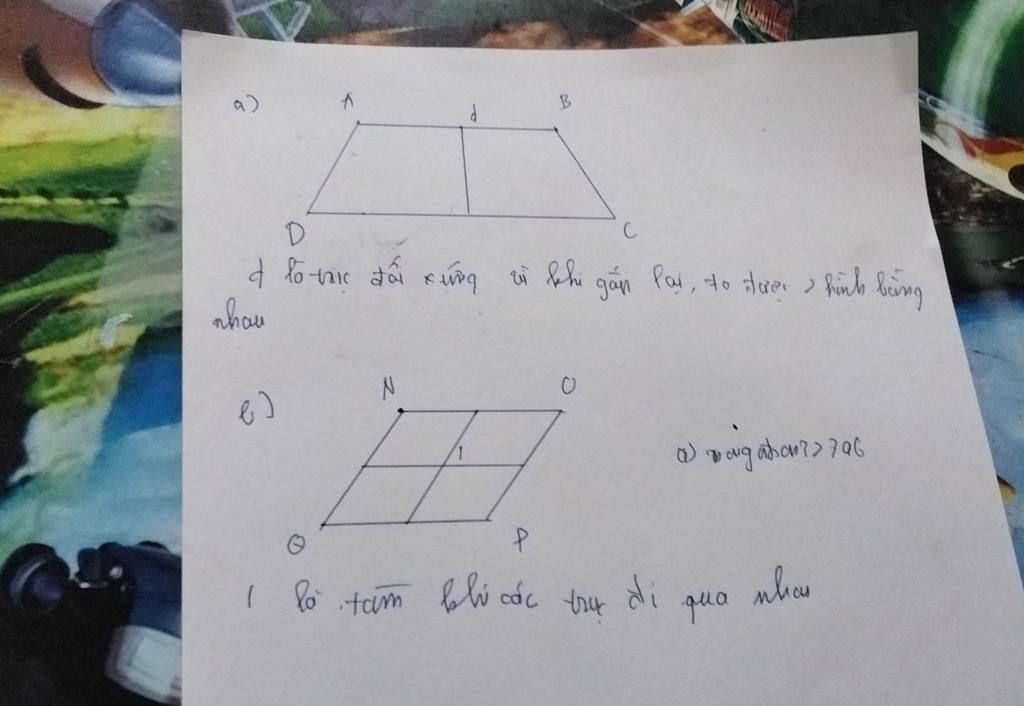 a)
A d B
D C
d là trục đối xứng vì khi gấp lại, ta được 2 hình bằng
nhau
b)
N O
I
Q P
I là tâm khi các trục đi qua nhau